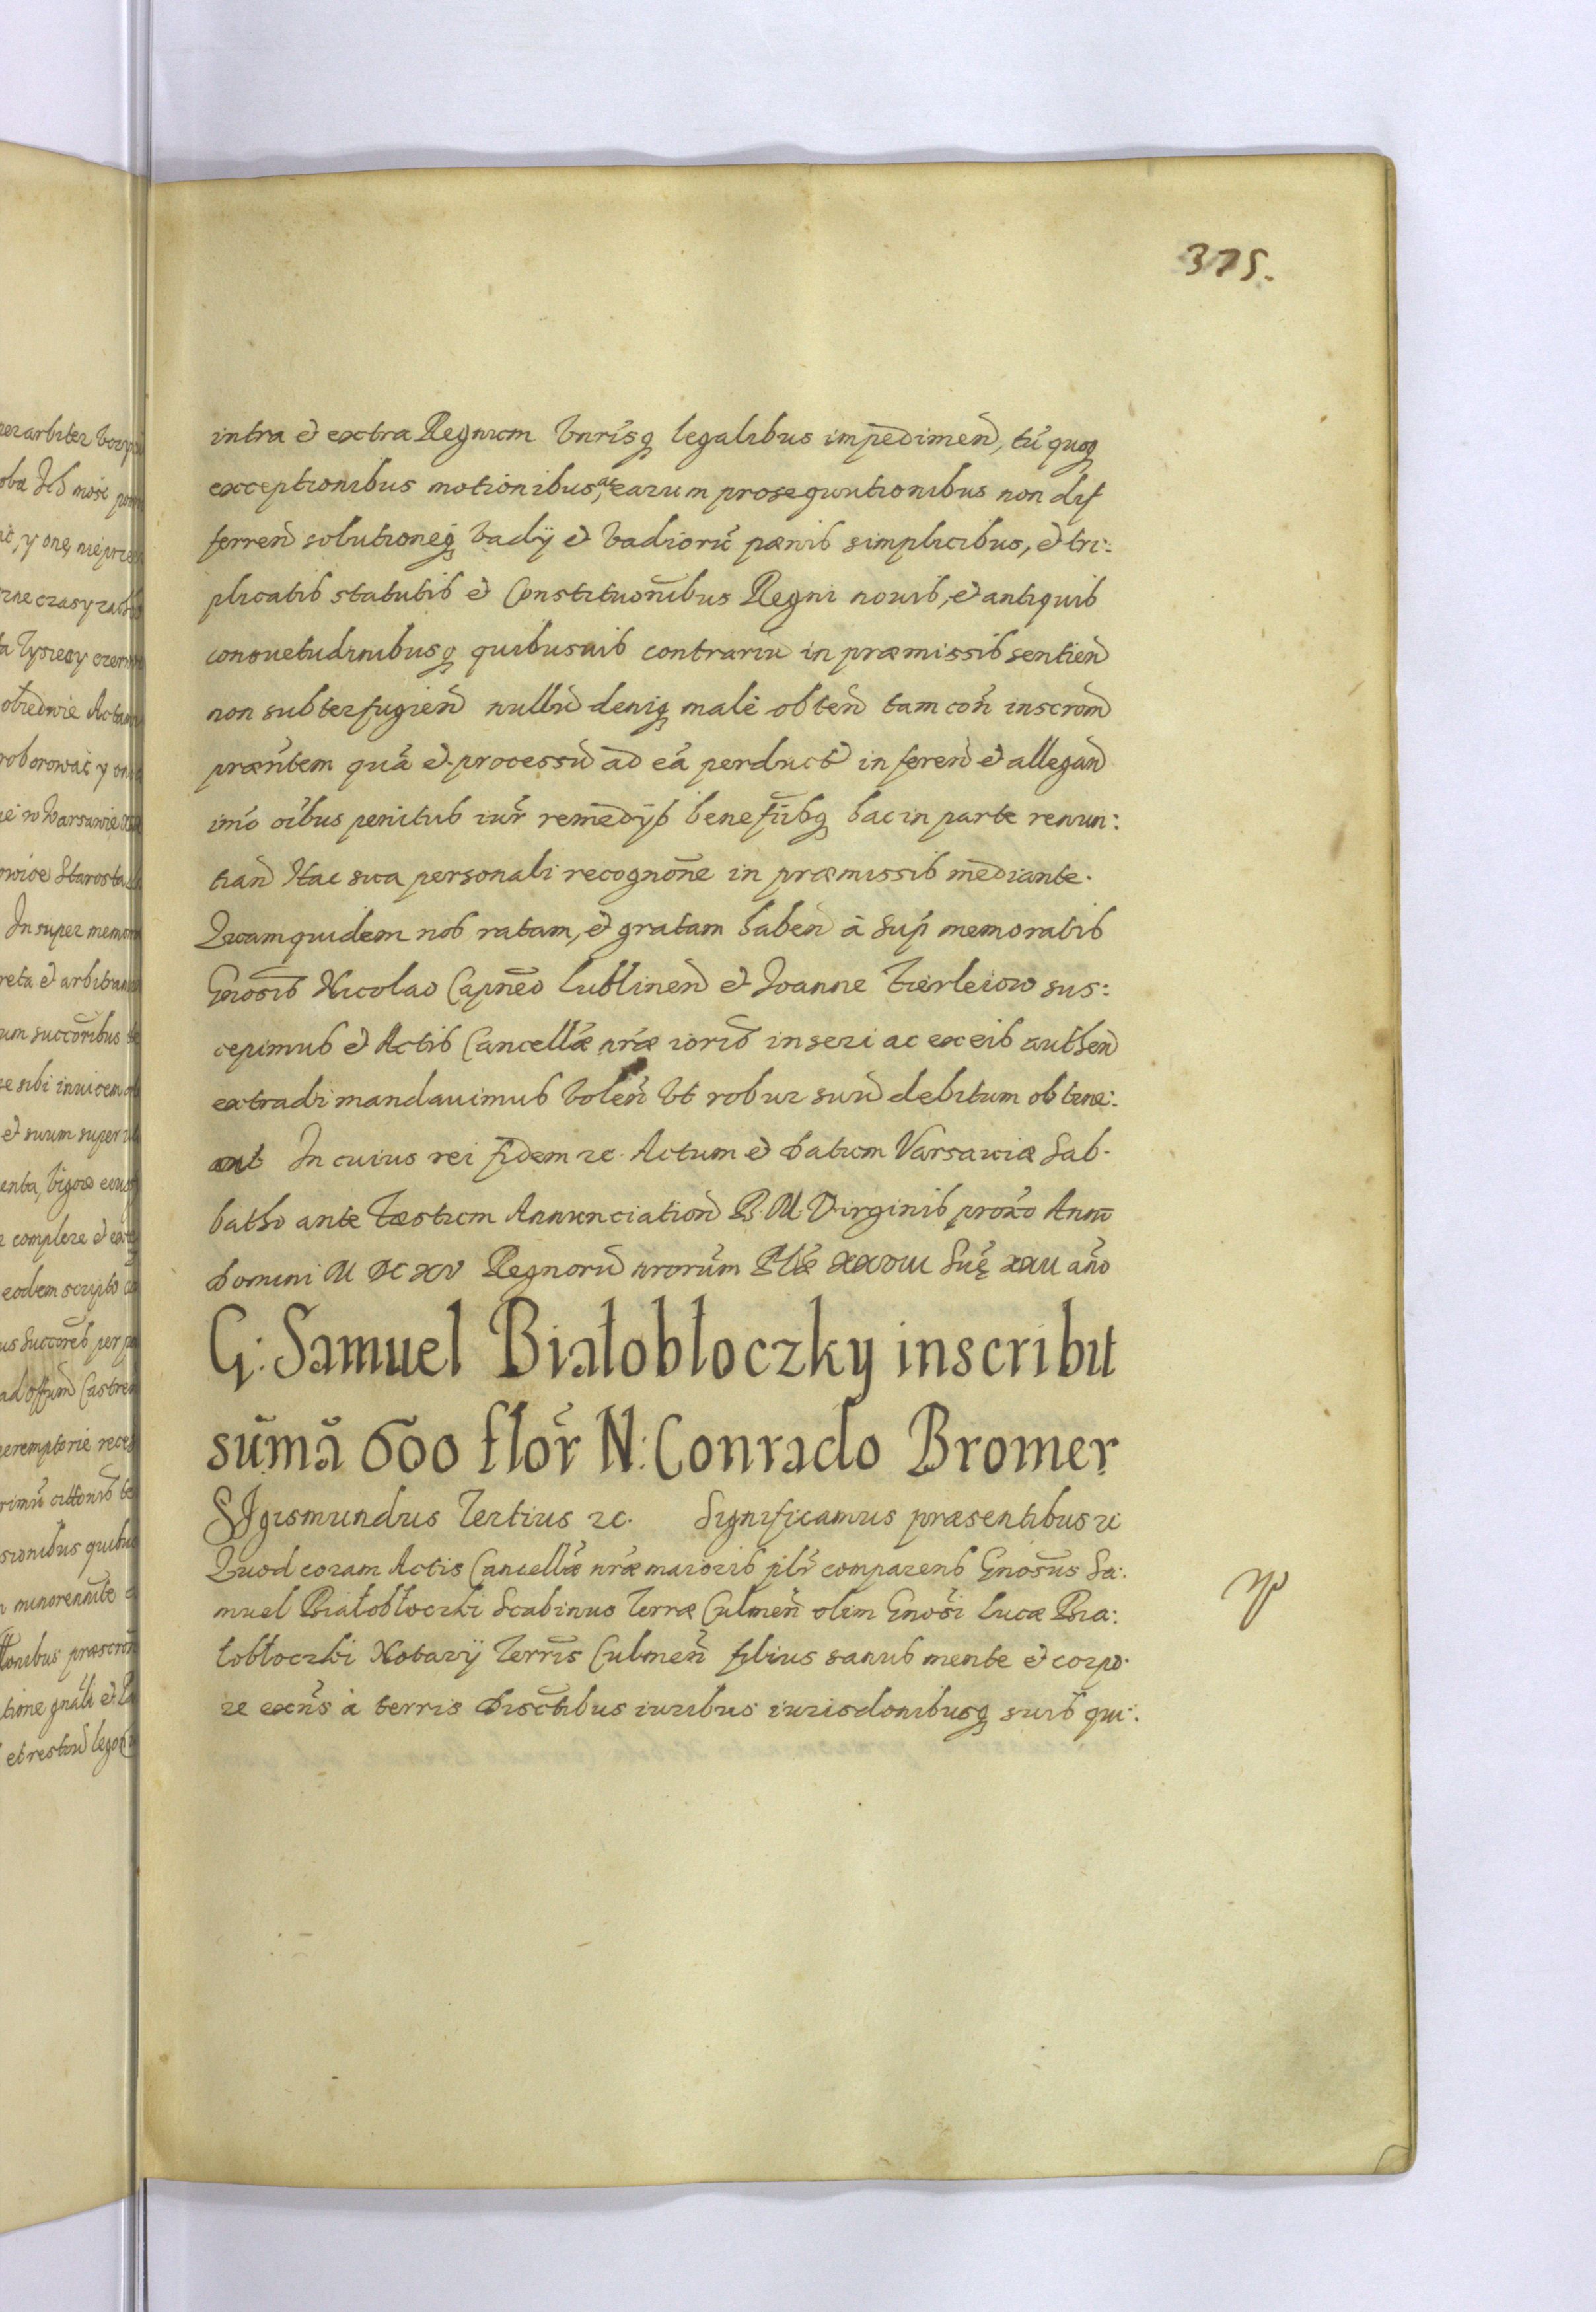 375.
intra et extra Regnum vnrisq legalibus impedimen, tũ quoq
exceptionibus motionibus, ac earum prosequutionibus non dif
ferren solutioneq vadÿ et vadiorũ pœnis simplicibus, et tri:
plicatis statutis et Constitutionibus Regni nouis, et antiquis
consuetudinibusq quibusuis contrariu in præmissis sentien
non subterfugien nullũ deniq malè obten tam con inscrom
præntem quã et processũ ad eã perduct inferen et allegan
imò oibus penitus iur remedÿs benefijsq hac in parte renun:
tian Hac sua personali recognone in præmissis mediante.
Quamquidem nos ratam, et gratam haben à sup memoratis
Gnosis Nicolao Capneo Lublinen et Joanne Fierleiow sus:
cepimus et Actis Cancellæ nræ ioris inseri ac ex eis authen
extradi mandauimus volen vt robur suũ debitum obtine:
ant In cuius rei fidem ꝛc. Actum et datum Varsauiæ Sab-
batho ante Fæstum Annunciation B. M. Virginis proxo Anno
Domini M DC XV Regnorũ nrorum Plæ XXVIII Suę XXII año
G: Samuel Białobłoczky inscribit
sũmã 600 flor N: Conrado Bromer
SIgismundus Tertius ꝛc. Significamus præsentibus ꝛc
Quod coram Actis Cancellæ nræ maioris plr comparens Gnosus Sa:
muel Białobłoczki Scabinus Terræ Culmen olim Gnosi Lucæ Bia:
łobłoczki Notarÿ Terris Culmen filius sanus mente et corpo-
re exns à terris disctibus iuribus iurisdonibusq suis qui: